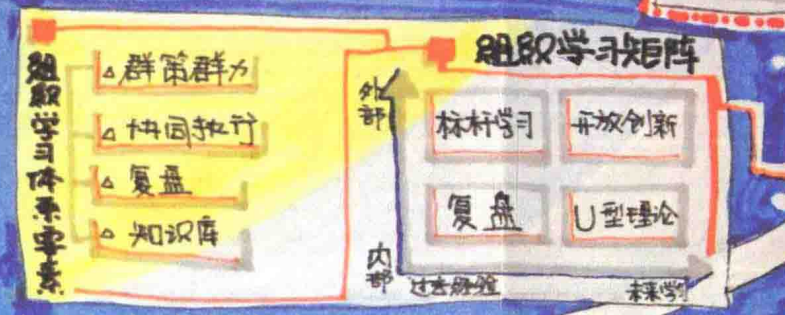 组织学习体系要素
△群策群力
△协同执行
△复盘
△知识库
组织学习矩阵
外部
标杆学习
开放创新
复盘
U型理论
内部
过去经验
未来学习